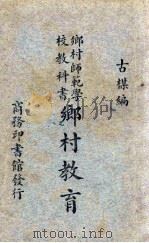 古楳編
鄉村師範學
校教科書
鄉村教育
商務印書館發行